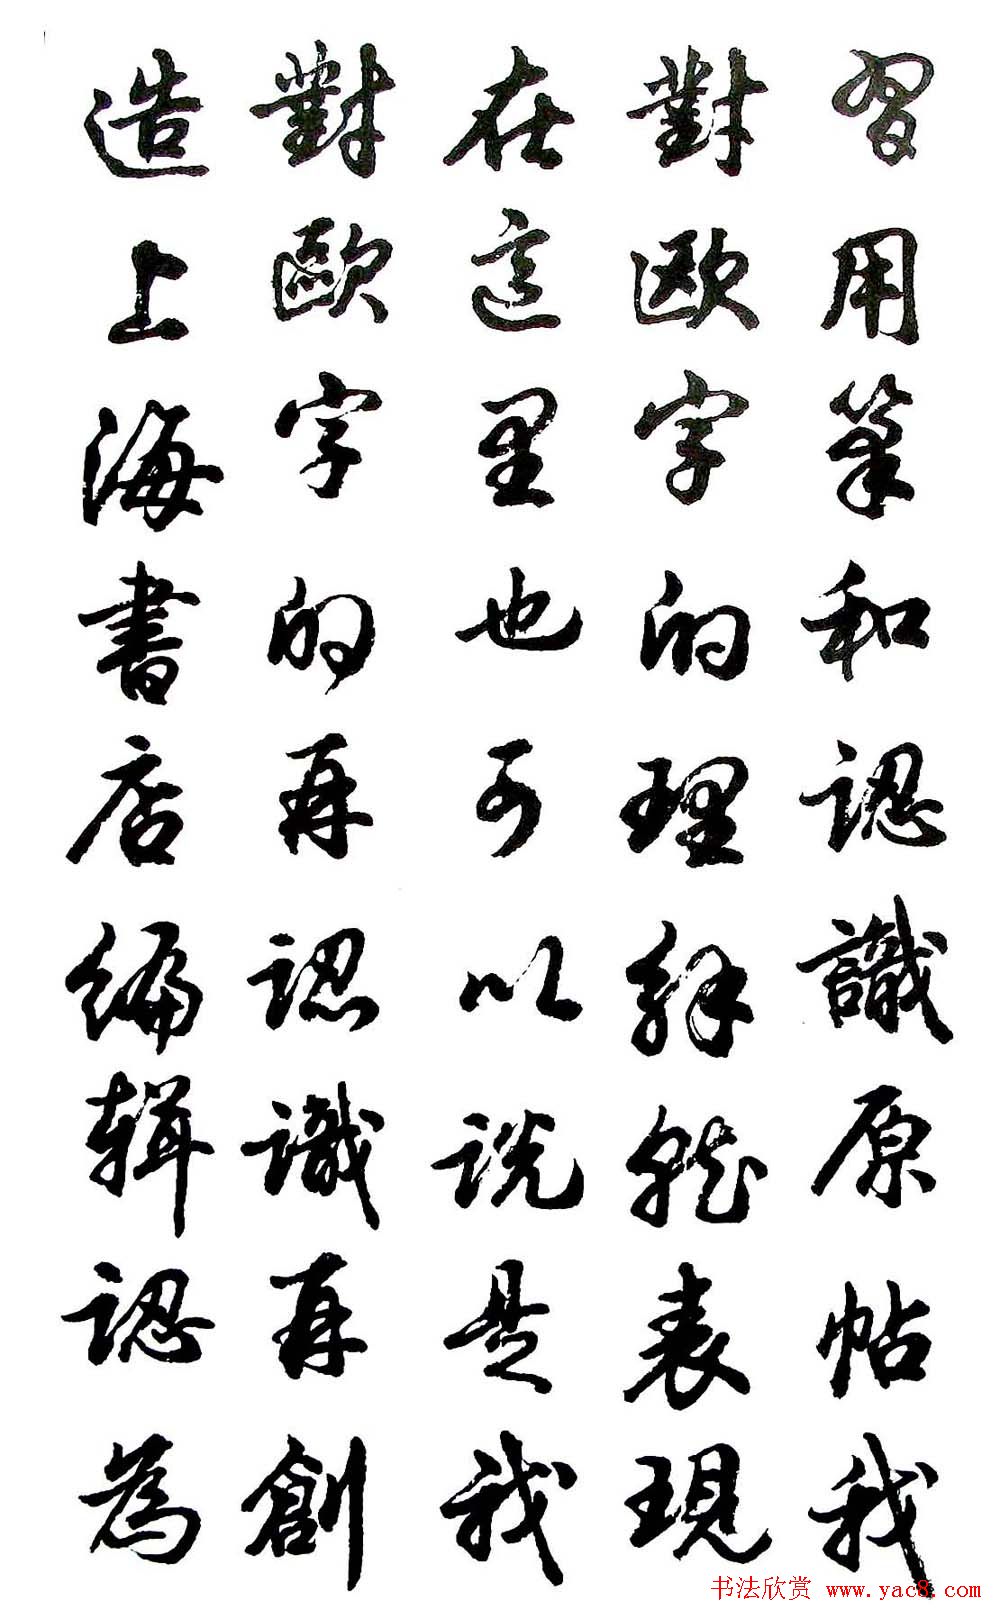 習用筆和認識原帖我
對欧字的理解就表現
在這里也可以說是我
對歐字的再認識再創
造上海書店編輯認為
书法欣赏 www.yac8.com